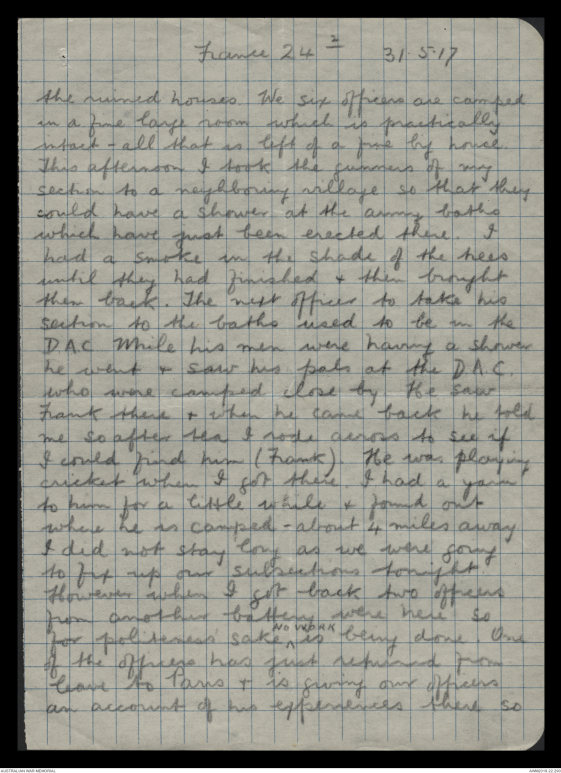 France 24 2 31.5.17
the ruined houses. We six officers are camped
in a fine large room which is practically
intact - all that is left of a fine big house.
This afternoon I took the gunners of my
section to a neighboring village so that they
could have a shower at the army baths
which have just been erected there. I
had a smoke in the shade of the trees
until they had finished & then brought
them back. The next officer to take his
section to the baths used to be in the
D.A.C. While his men were having a shower
he went & saw his pals at the D.A.C.
who were camped close by. He saw
Frank there & when he came back he told
me so after tea I rode across to see if
I could find him (Frank). He was playing
cricket when I got there. I had a yarn
to him for a little while & found out
where he is camped - about 4 miles away
I did not stay long as we were going
to fix up our subsections tonight
However when I got back two officers
from another battery were here so
NO WORK
for politeness' sake ^ is being done One
of the officers has just returned from
leave to Paris & is giving our officers
an account of his experiences there so
AUSTRALIAN WAR MEMORIAL